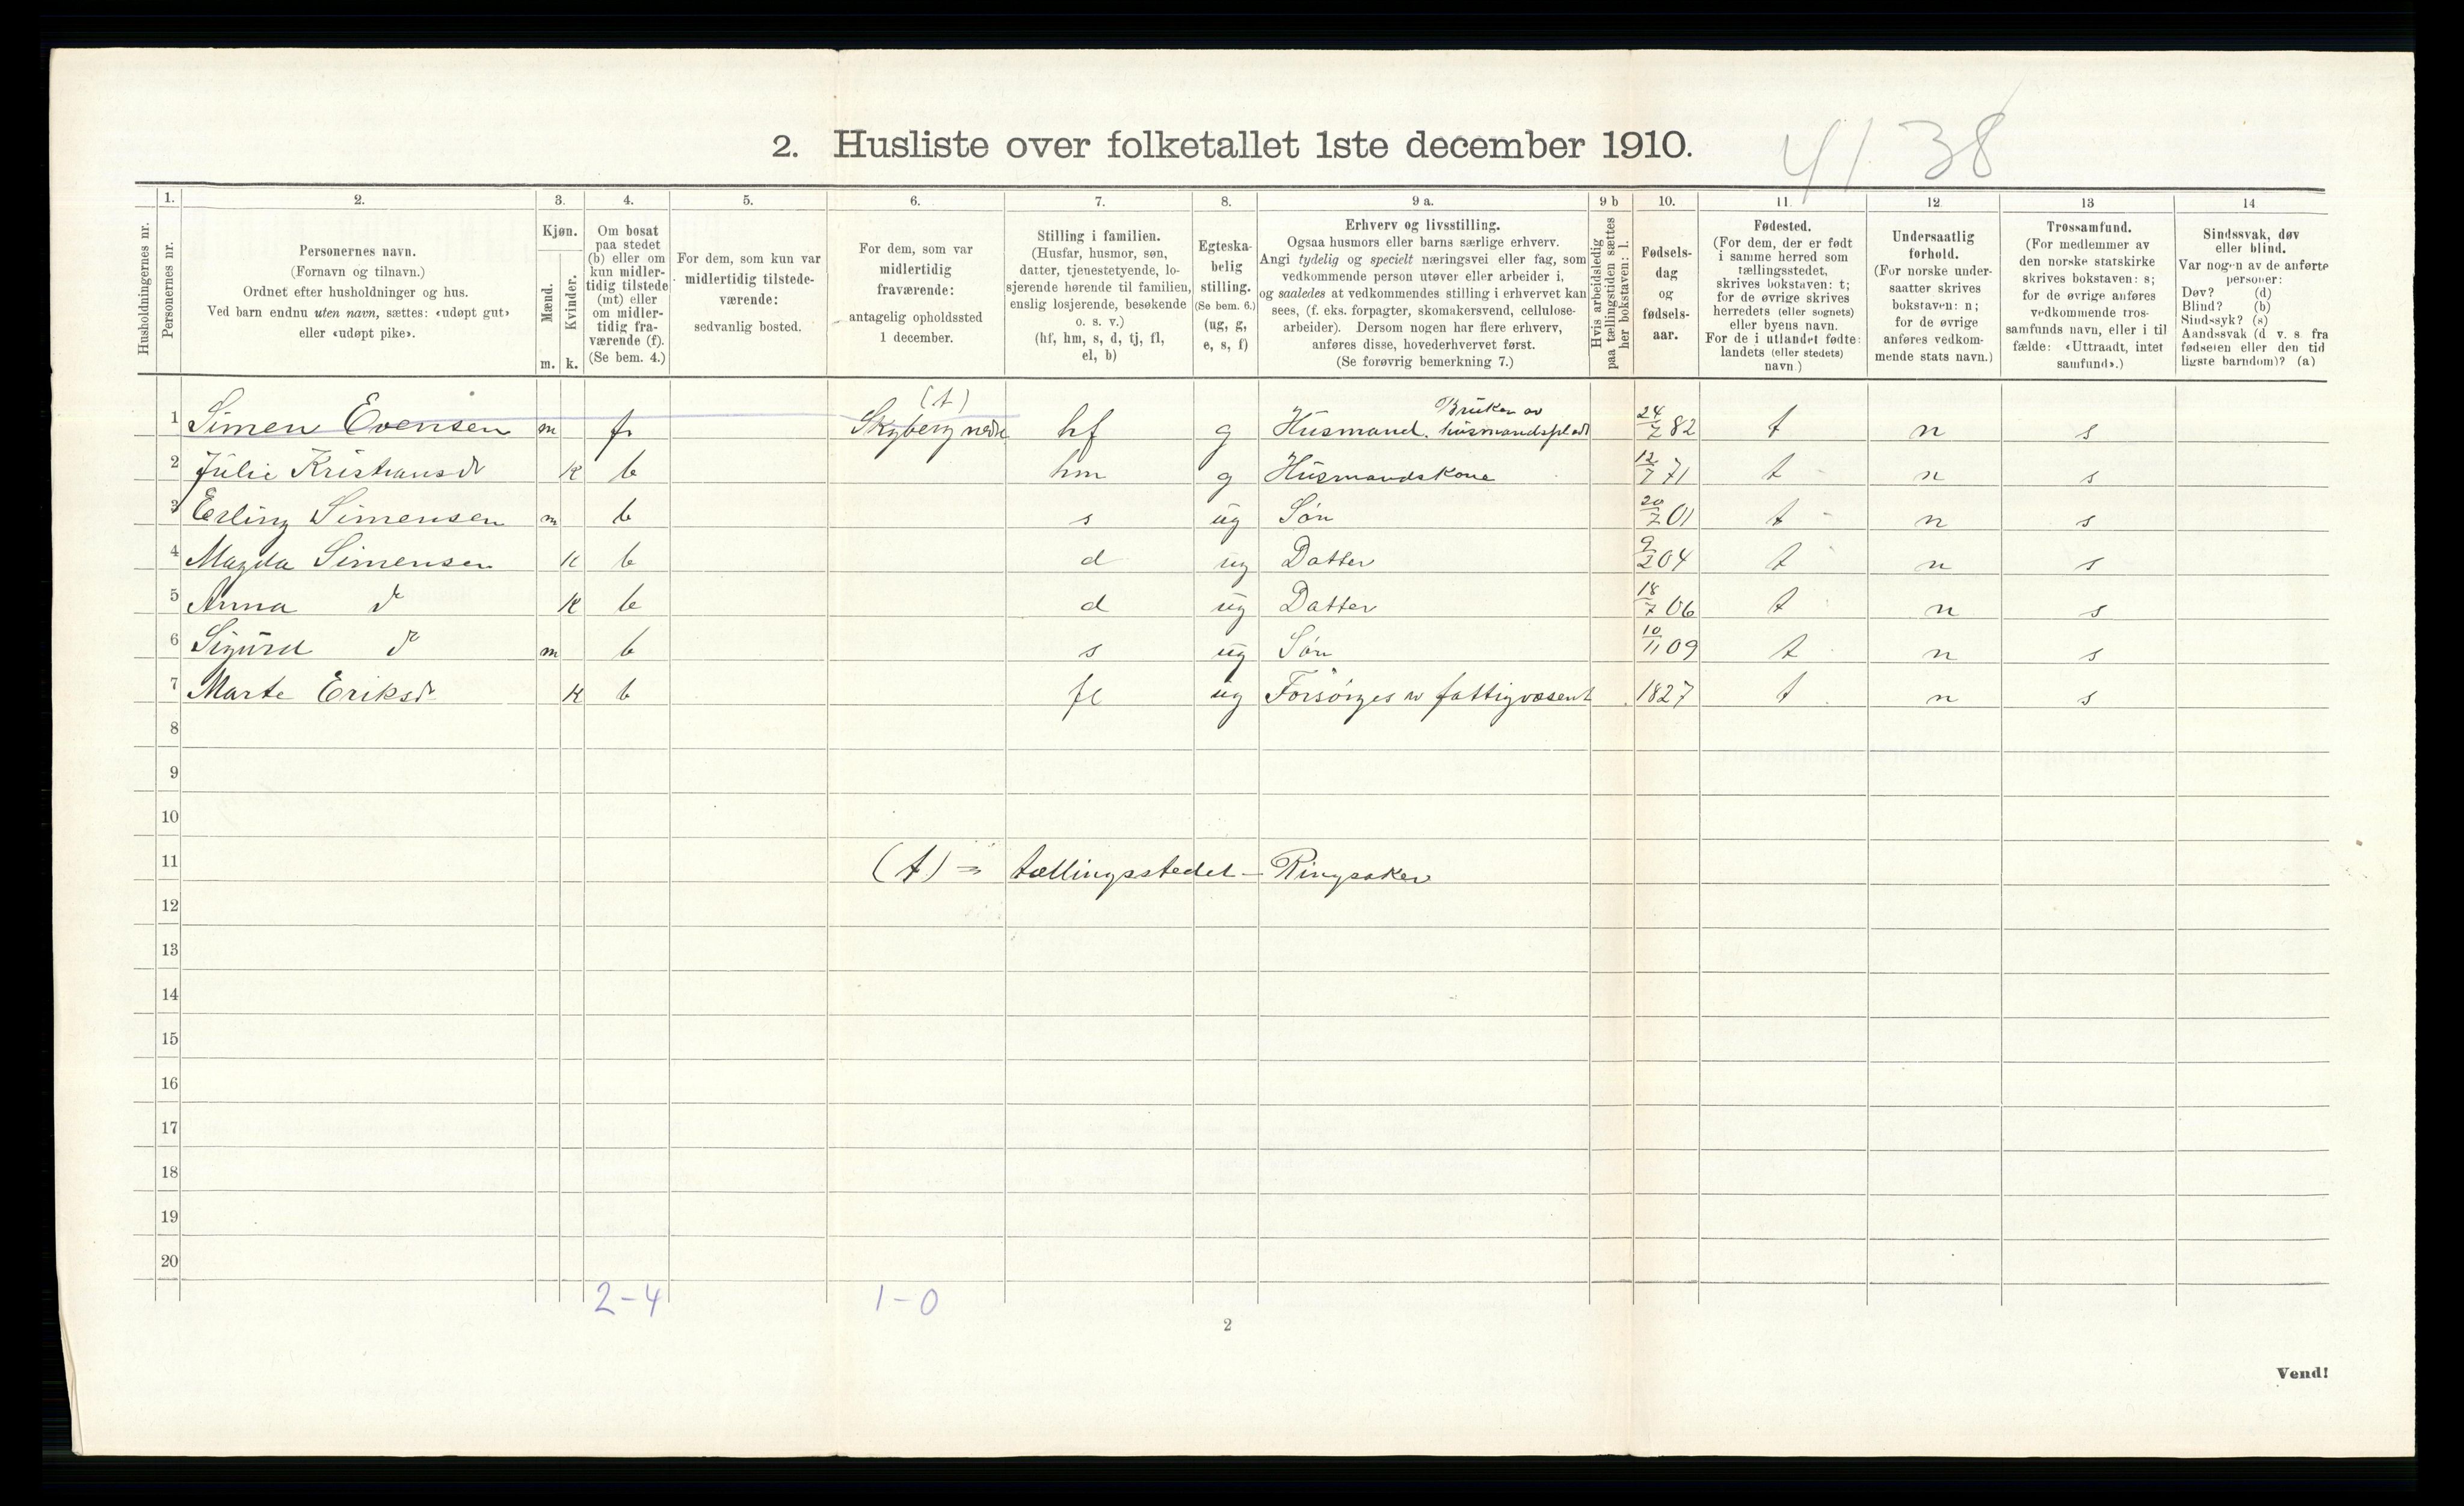 41 38
2. Husliste over folketallet 1ste december 1910.
Husholdningernes nr.
1.
Personernes nr.
2.
Personernes navn.
(Fornavn og tilnavn.)
Ordnet efter husholdninger og hus.
Ved barn endnu uten navn, sættes: «udøpt gut»
eller «udøpt pike».
3.
Kjøn.
Mænd.
Kvinder.
m. k.
4.
Om bosat
paa stedet
(b) eller om
kun midler-
tidig tilstede
(mt) eller
om midler-
tidig fra-
værende (f).
(Se bem. 4.)
5.
For dem, som kun var
midlertidig tilstede-
værende:
sedvanlig bosted.
6.
For dem, som var
midlertidig
fraværende:
antagelig opholdssted
1 december.
7.
Stilling i familien.
(Husfar, husmor, søn,
datter, tjenestetyende, lo-
sjerende hørende til familien,
enslig losjerende, besøkende
o. s. v.)
(hf, hm, s, d, tj, fl,
el, b)
8.
Egteska-
belig
stilling.
(Se bem. 6.)
(ug, g,
e, s, f)
9 a.
Erhverv og livsstilling.
Ogsaa husmors eller barns særlige erhverv.
Angi tydelig og specielt næringsvei eller fag, som
vedkommende person utøver eller arbeider i,
og saaledes at vedkommendes stilling i erhvervet kan
sees, (f. eks. forpagter, skomakersvend, cellulose-
arbeider). Dersom nogen har flere erhverv,
anføres disse, hovederhvervet først.
(Se forøvrig bemerkning 7.)
9 b
Hvis arbeidsledig
paa tællingstiden sættes
her bokstaven: l.
10.
Fødsels-
dag
og
fødsels-
aar.
11.
Fødested.
(For dem, der er født
i samme herred som
tællingsstedet,
skrives bokstaven: t;
for de øvrige skrives
herredets (eller sognets)
eller byens navn.
For de i utlandet fødte:
landets (eller stedets)
navn.)
12
Undersaatlig
forhold.
(For norske under-
saatter skrives
bokstaven: n;
for de øvrige
anføres vedkom-
mende stats navn.)
13
Trossamfund.
(For medlemmer av
den norske statskirke
skrives bokstaven: s;
for de øvrige anføres
vedkommende tros-
samfunds navn, eller i til
fælde: «Uttraadt, intet
samfund».)
14
Sindssvak, døv
eller blind.
Var nogen av de anførte
personer:
Døv? (d)
Blind? (b)
Sindssyk? (s)
Aandssvak (d v. s. fra
fødselen eller den tid
ligste barndom)? (a)
(t) Bruker av
1 Simen Evensen m f Skyberg nedre hf g Husmand. husmandsplads 24/7 82 t n s
2 Julie Kristiansdr K b hm g Husmandskone 12/7 71 t n s
3 Erling Simensen m b s ug Søn 20/7 01 t n s
4 Magda Simensen K b d ug Datter 9/2 04 t n s
5 Anna do K b d ug Datter 18/7 06 t n s
6 Sigurd do m b s ug Søn 10/11 09 t n s
7 Marte Eriksdr K b fl ug Forsørges av fattigvæsent 1827 t n s
8
9
10
11 (t) = tællingsstedet – Ringsaker
12
13
14
15
16
17
18
19
20
2-4 1-0
2
Vend!